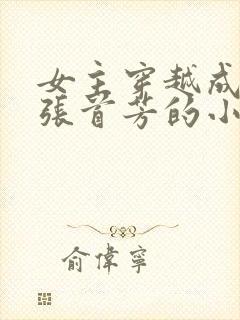 女主穿越成
張首芳的小
俞偉寧